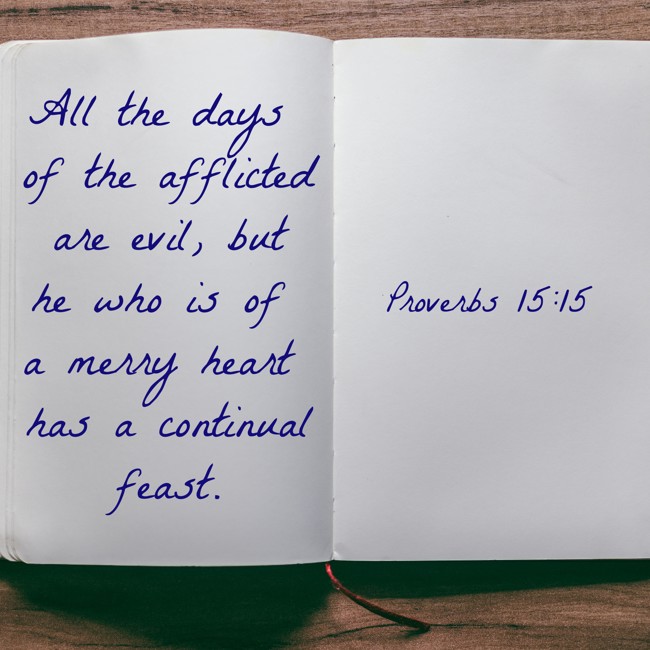 All the days
of the afflicted
are evil, but
he who is of
a merry heart
has a continual
feast.
Proverbs 15:15